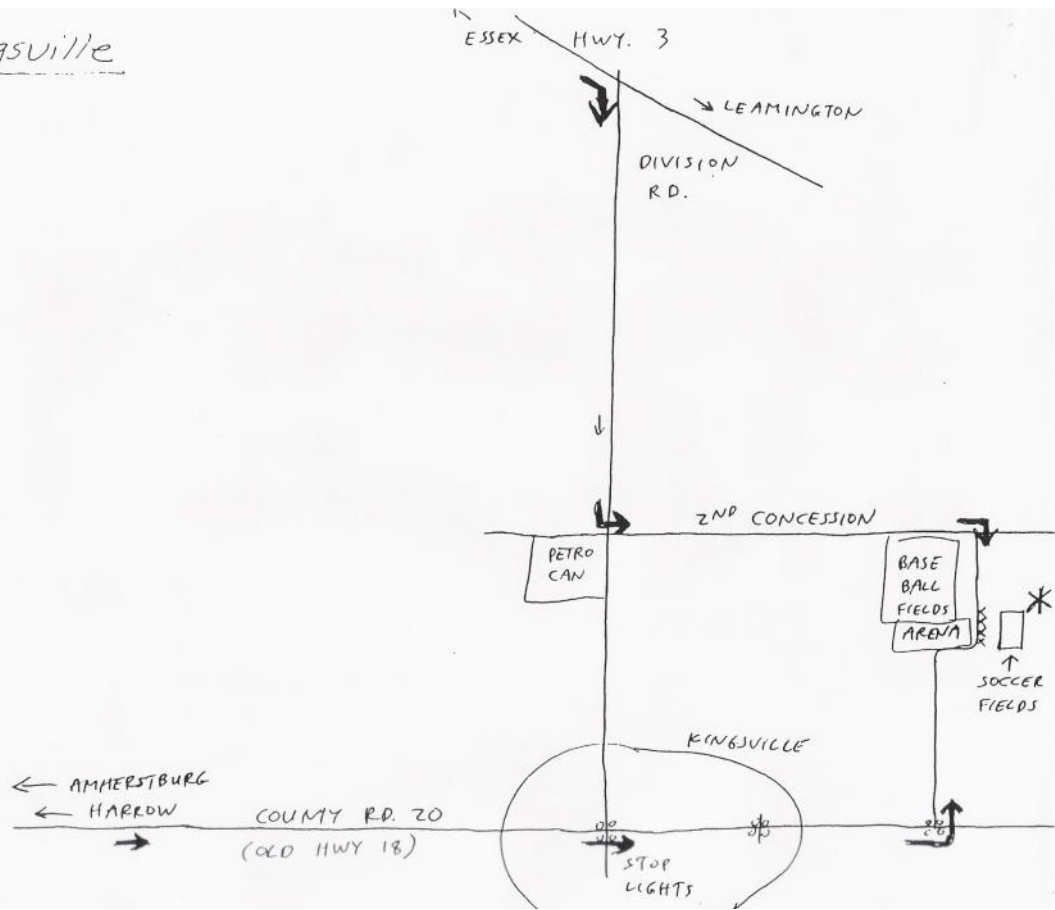 gsville
ESSEX
HWY. 3
LEAMINGTON
DIVISION
RD.
2ND CONCESSION
PETRO
CAN
BASE
BALL
FIELDS
ARENA
SOCCER
FIELDS
KINGSVILLE
AMHERSTBURG
HARROW
COUNTY RD. 20
(OLD HWY 18)
STOP
LIGHTS